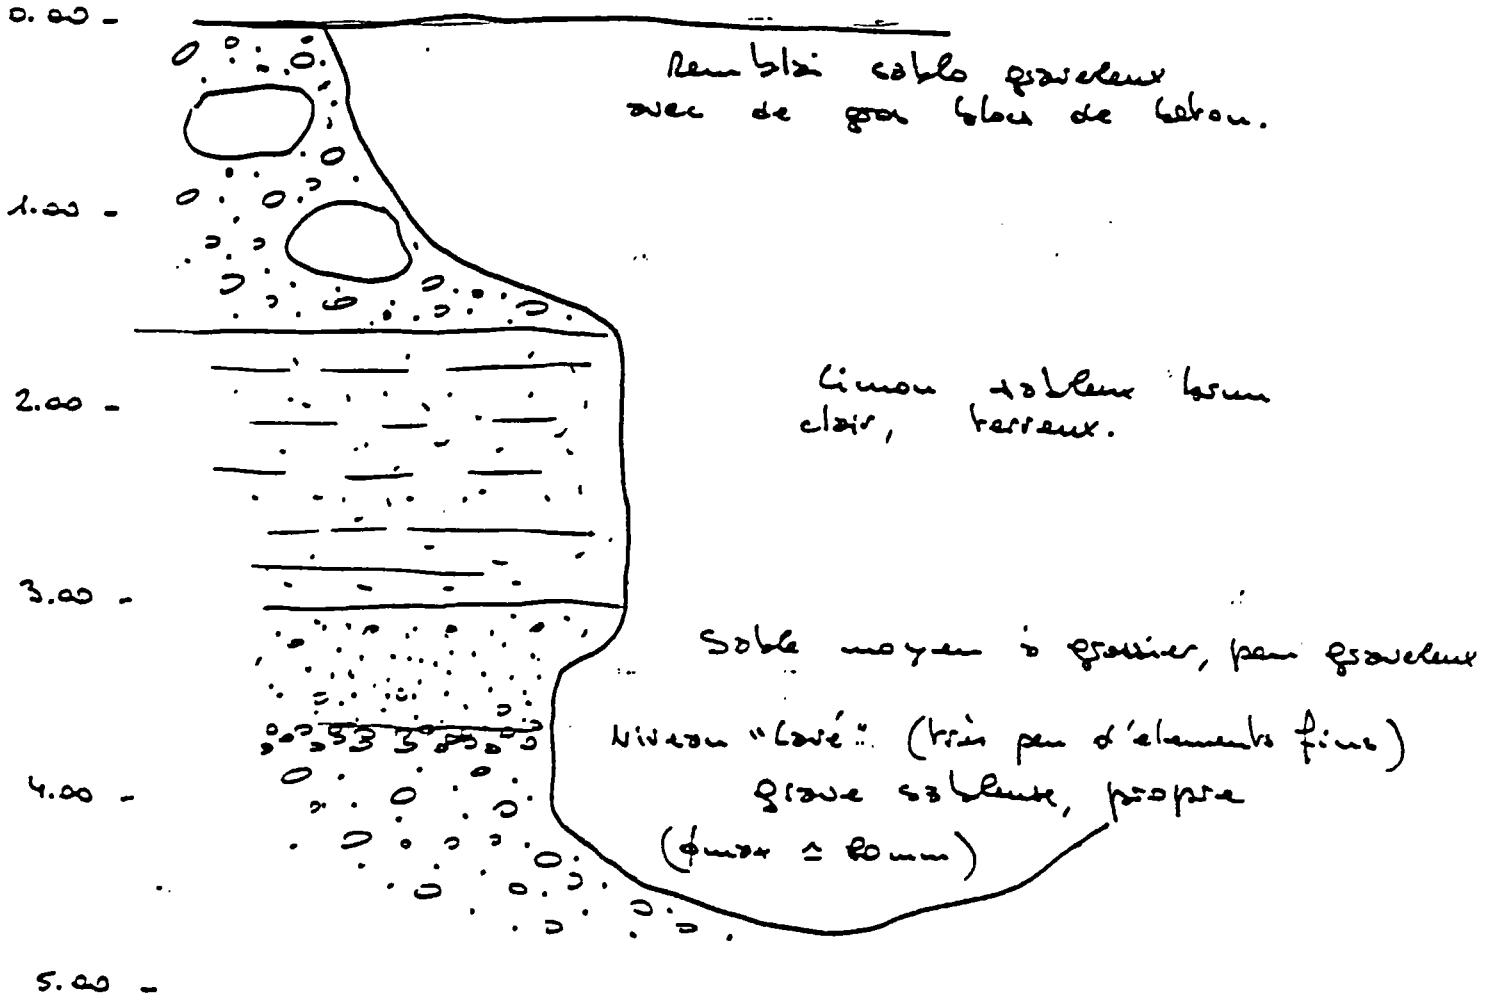 0.00 -
Remblai sablo graveleux
avec de gros blocs de béton.
1.00 -
2.00 -
Limon sableux brun
clair, terreux.
3.00 -
Sable moyen à grossier, peu graveleux
Niveau "lavé". (très peu d'élements fins)
4.00 -
grave sableuse, propre
(ϕmax ≃ 80mm)
5.00 -